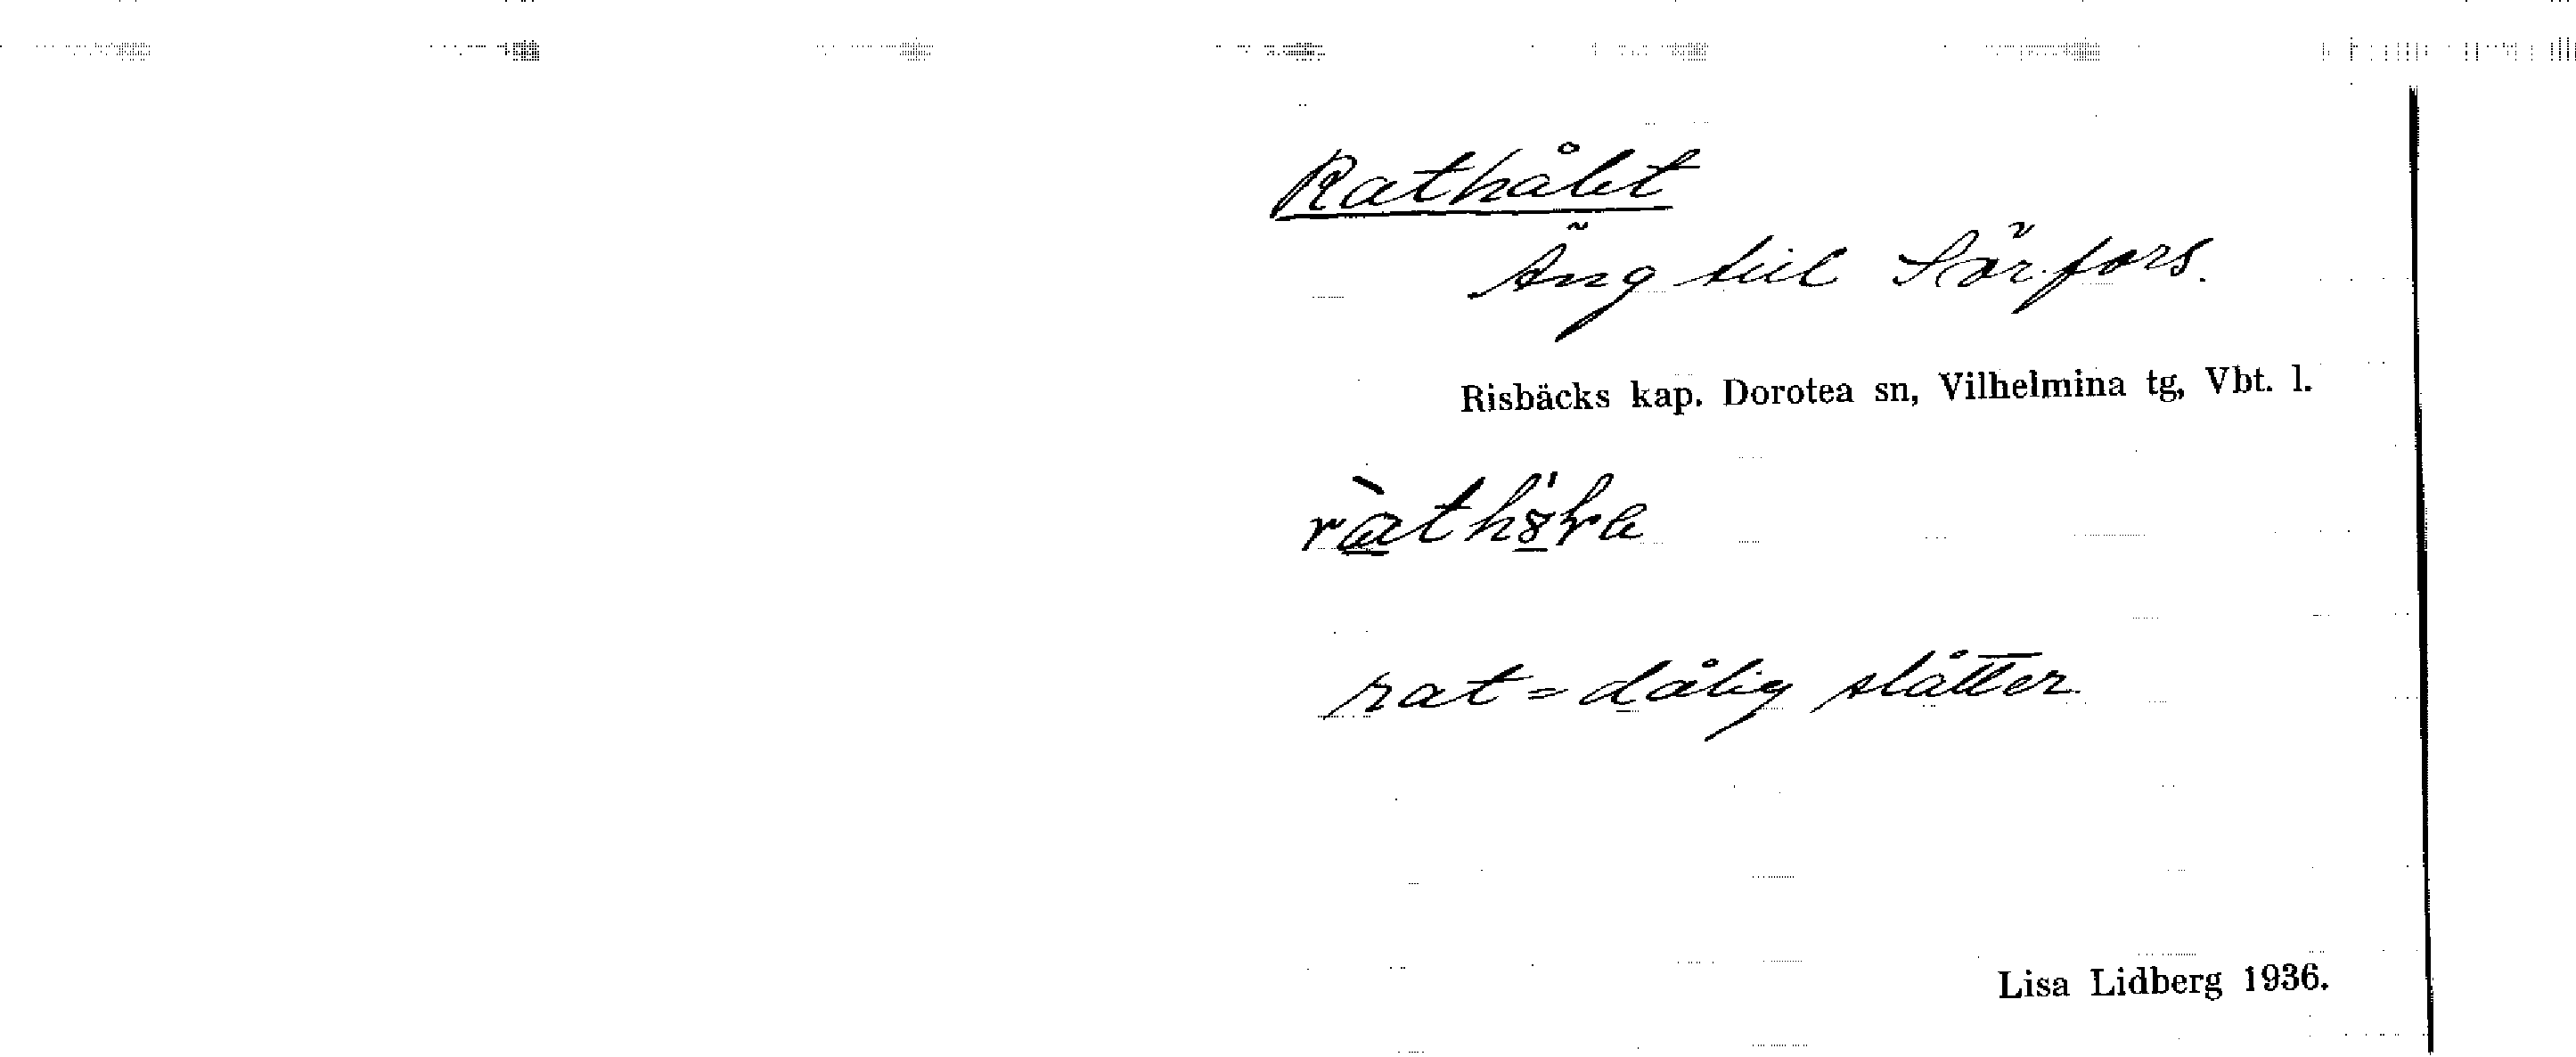 Rathålet
Äng till Sörfors.
Risbäcks kap. Dorotea sn, Vilhelmina tg, Vbt. l.
rat = dålig slåtter
Lisa Lidberg 1936.